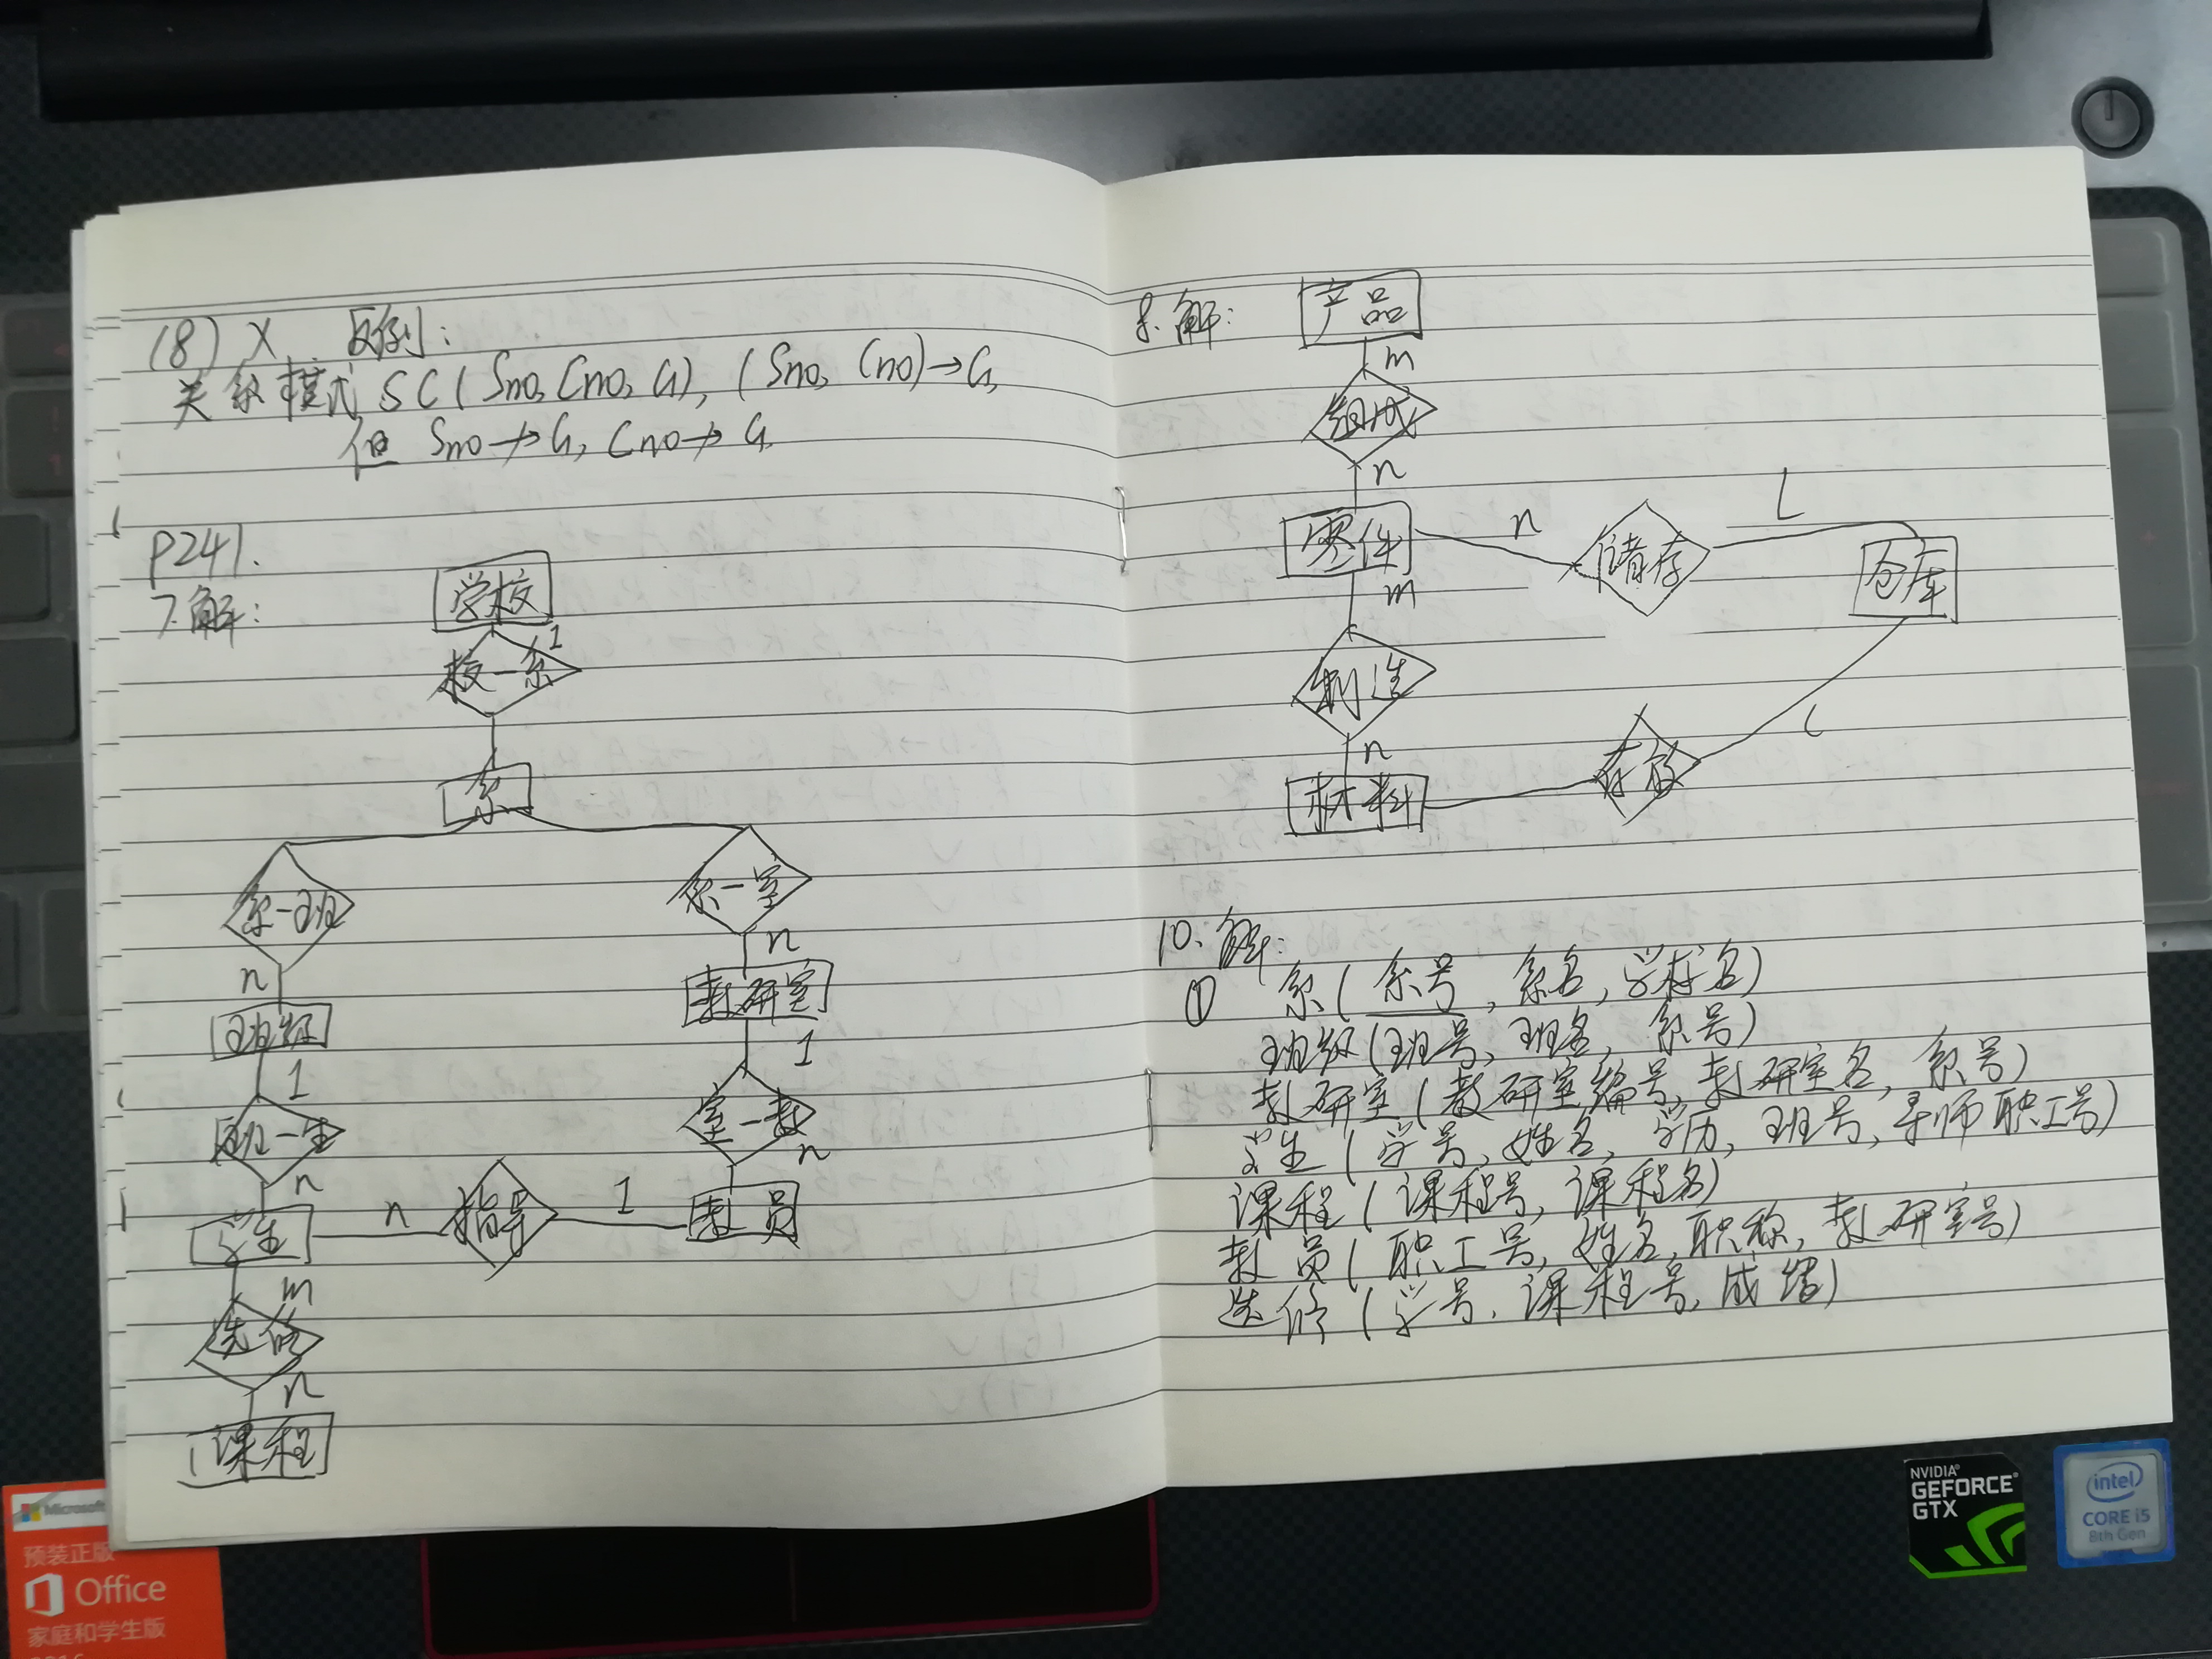 (8) X 反例:
关系模式 SC(Sno, Cno, G), (Sno, Cno)→G,
但 Sno↛G, Cno↛G.
P241.
7.解:
学校
1
校一系
系
系一班
系一室
n
n
班级
教研室
1
1
班一生
室一教
n
n
学生
n
指导
1
教员
m
选修
n
课程
8.解:
产品
m
组成
n
零件
n
储存
L
仓库
m
制造
n
材料
存放
L
10.解:
① 系(系号,系名,学校名)
班级(班号,班名,系号)
教研室(教研室编号,教研室名,系号)
学生(学号,姓名,学历,班号,导师职工号)
课程(课程号,课程名)
教员(职工号,姓名,职称,教研室号)
选修(学号,课程号,成绩)
Microsoft
预装正版
Office
家庭和学生版
NVIDIA®
GEFORCE®
GTX
intel®
CORE i5
8th Gen